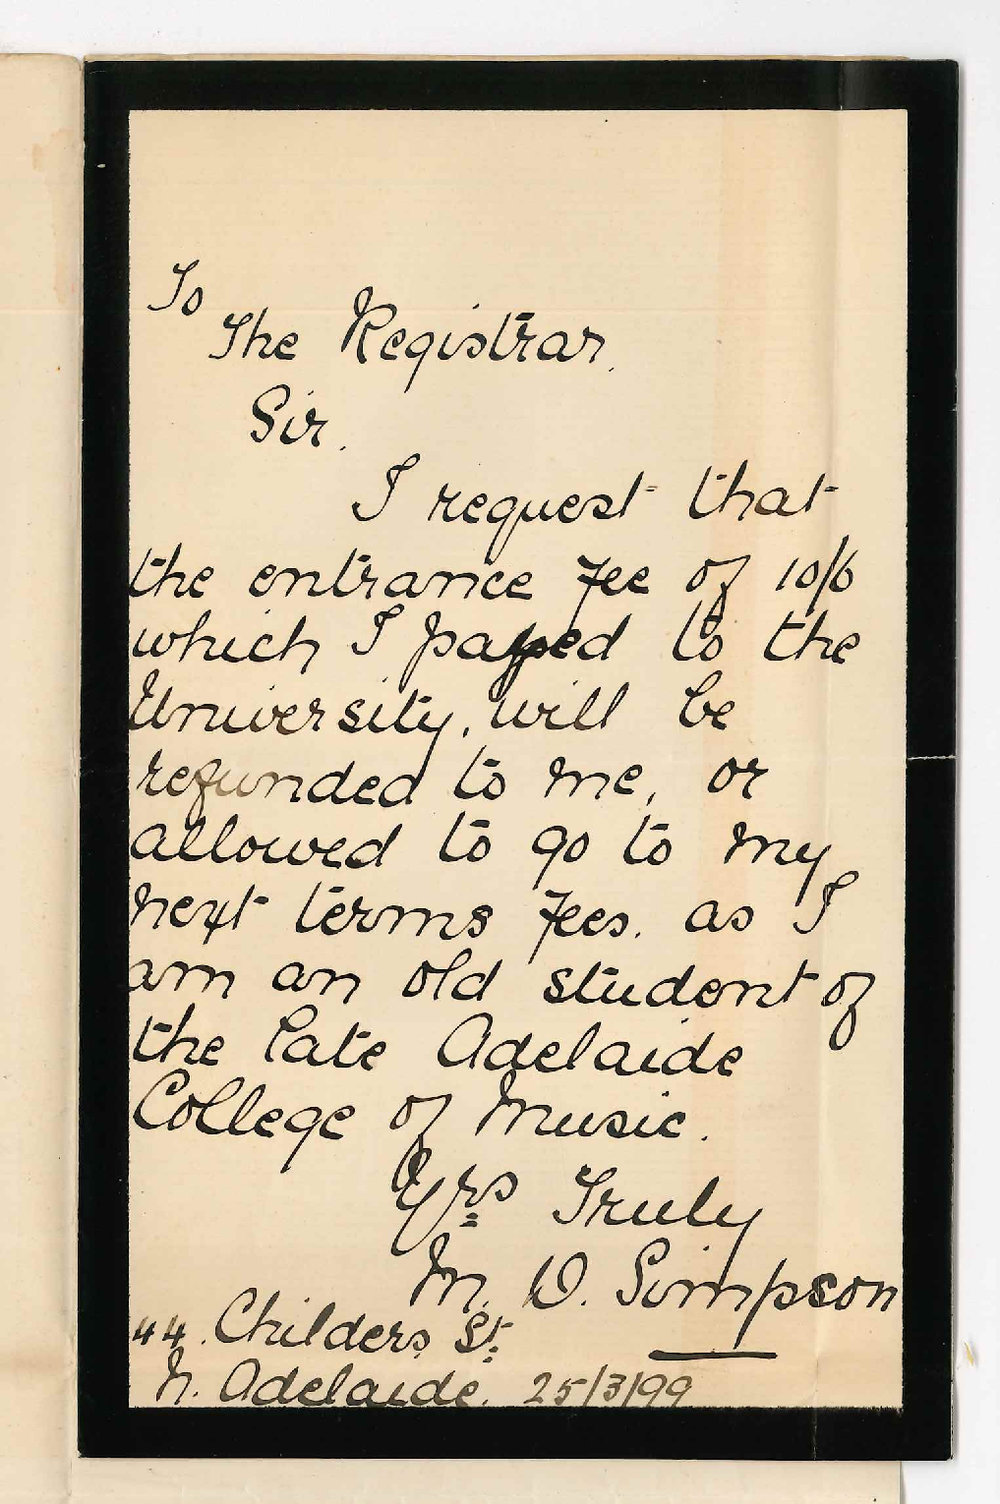 To
The Registrar.
Sir.
I request that
the entrance fee of 10/6
which I payed to the
University, will be
refunded to me, or
allowed to go to my
next terms fees. as I
am an old student of
the late Adelaide
College of Music.
Yrs Truly
M. D. Simpson
44. Childers St.
N. Adelaide. 25/3/99